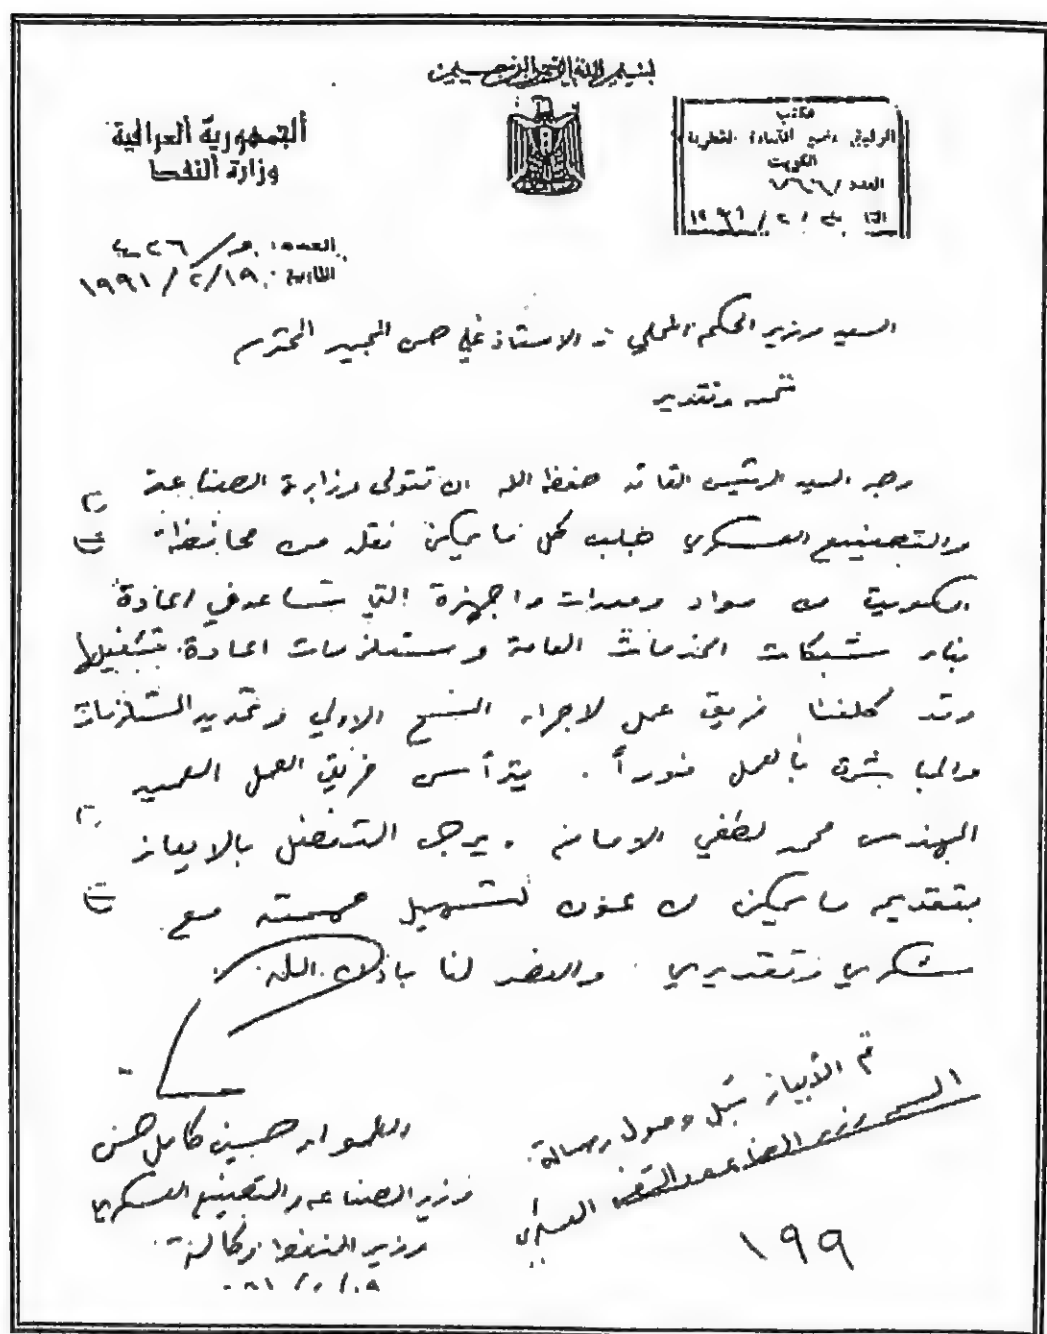 بسم الله الرحمن الرحيم
الجمهورية العراقية
وزارة النفط
مكتب
الرفيق عضو القيادة القطرية
الكويت
العدد /
التاريخ / ٢ / ١٩٩١
العدد:
التاريخ: ١٩ / ٢ / ١٩٩١
السيد وزير الحكم المحلي : الاستاذ علي حسن المجيد المحترم
تحية وتقدير
وجه السيد الرئيس القائد حفظه الله ان تتولى وزارة الصناعة
والتصنيع العسكري جلب كل ما يمكن نقله من محافظة
الكويت من مواد ومعدات واجهزة التي تساعد في اعادة
بناء شبكات الخدمات العامة ومستلزمات اعادة تشغيلها
وقد كلفنا فريق عمل لاجراء المسح الاولي وتحديد المستلزمات
والمباشرة بالعمل فوراً . يترأس فريق العمل العميد
المهندس محمد لطفي الامام . يرجى التفضل بالايعاز
بتقديم ما يمكن من عون لتسهيل مهمته مع
شكري وتقديري . والنصر لنا باذن الله .
تم الأيعاز قبل وصول رسالة
السيد وزير الصناعة والتصنيع العسكري
اللواء حسين كامل حسن
وزير الصناعة والتصنيع العسكري
وزير النفط وكالة
١٩٩